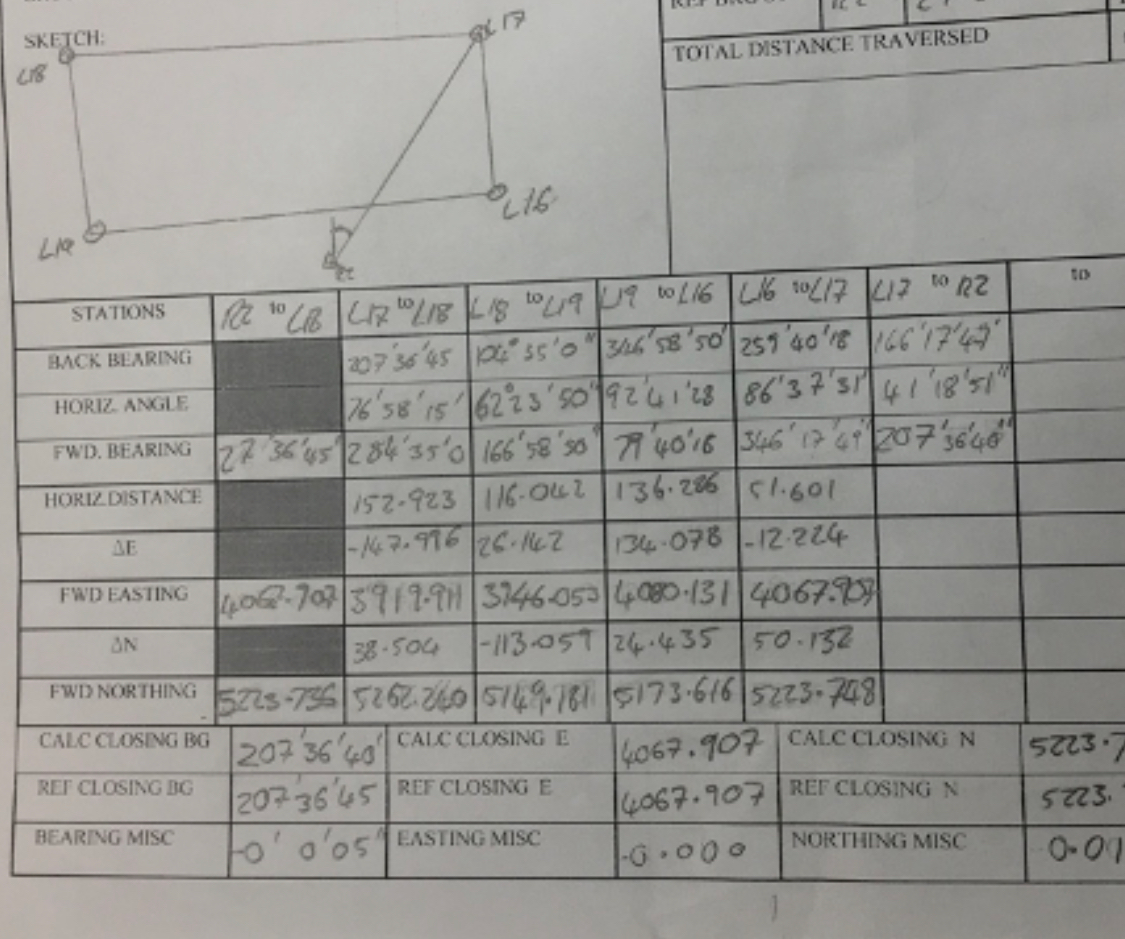 SKETCH:
L17
L18
TOTAL DISTANCE TRAVERSED
L16
L19
STATIONS R2 to L18 L17 to L18 L18 to L19 L19 to L16 L16 to L17 L17 to R2 to
BACK BEARING 207'36'45 104°35'0" 346'58'50' 259'40'18 166'17'49'
HORIZ. ANGLE 76'58'15' 62°23'50" 92'41'28 86'37'31' 41'18'51"
FWD. BEARING 27'36'45' 284'35'0 166'58'50" 79'40'18 346'17'49' 207'36'40"
HORIZ.DISTANCE 152.923 116.042 136.286 51.601
ΔE -147.996 26.142 134.078 -12.224
FWD EASTING 4067.907 3919.911 3946.053 4080.131 4067.907
ΔN 38.504 -113.059 24.435 50.132
FWD NORTHING 5223.736 5262.240 5149.181 5173.616 5223.748
CALC CLOSING BG 207'36'40' CALC CLOSING E 4067.907 CALC CLOSING N 5223.7
REF CLOSING BG 207'36'45 REF CLOSING E 4067.907 REF CLOSING N 5223.
BEARING MISC -0' 0'05" EASTING MISC -0.000 NORTHING MISC 0.01